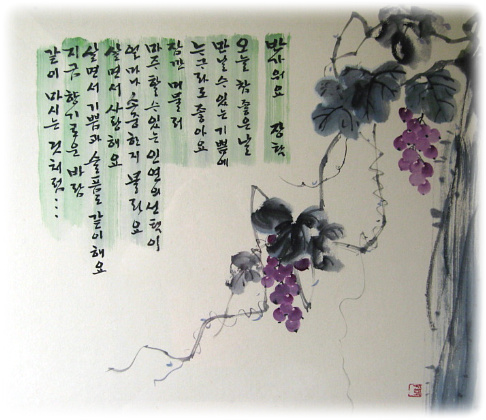 반가워요
오늘 참 좋은 날
만날 수 있는 기쁨에
누구라도 좋아요
잠깐 머물러
마주 할 수 있는 인연의 선택이
얼마나 소중한지 몰라요
살면서 사랑해요
살면서 기쁨과 슬픔도 같이해요
지금 향기로운 바람
같이 마시는 것처럼...